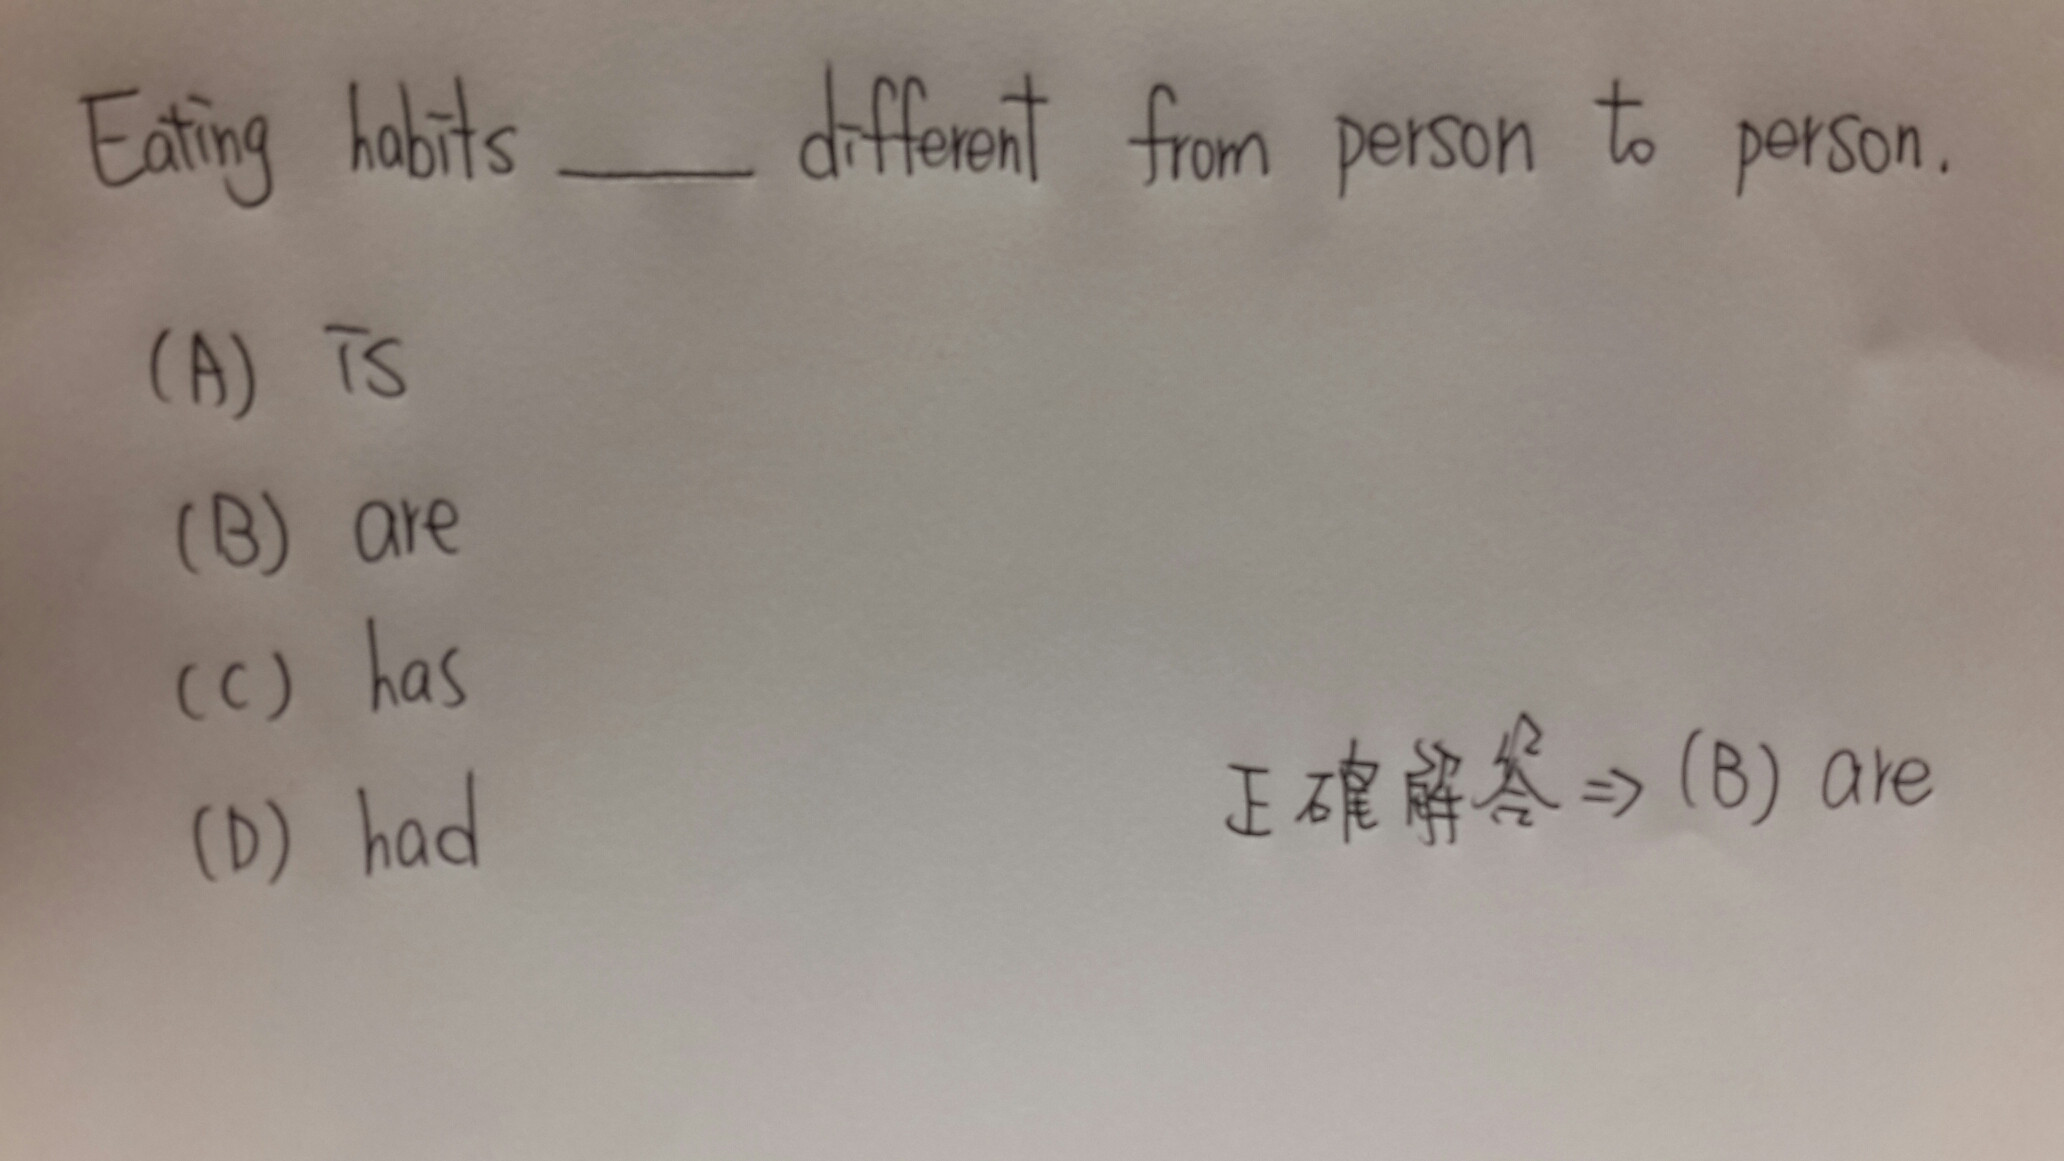 Eating habits ____ different from person to person.
(A) is
(B) are
(C) has
(D) had
正確解答⇒(B) are